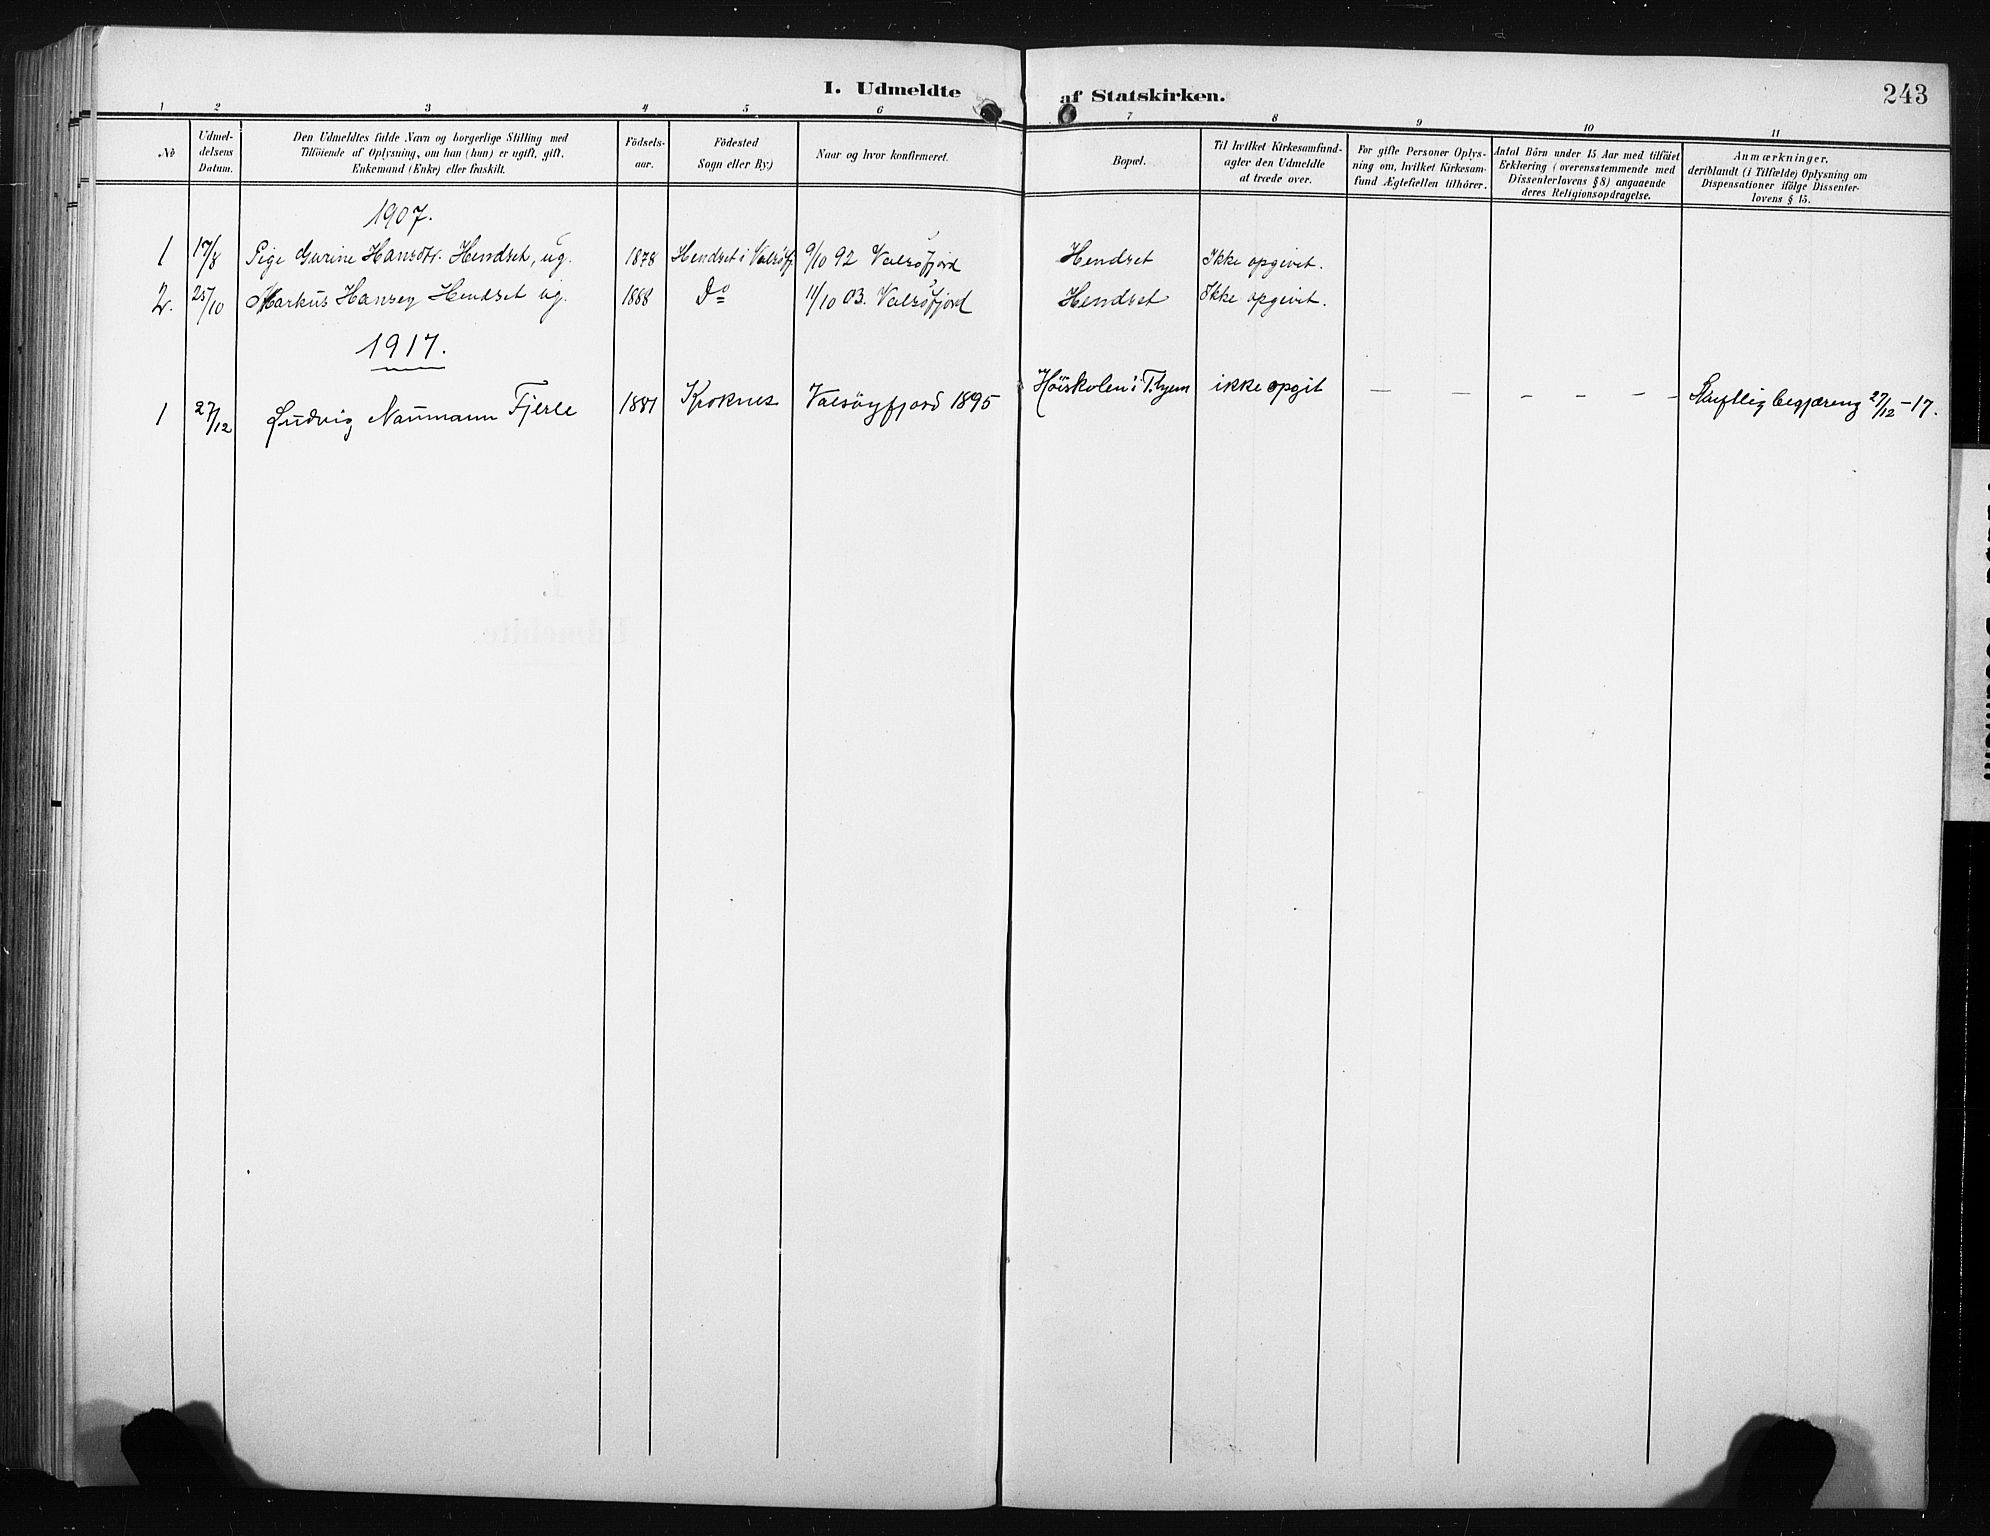 I. Udmeldte af Statskirken.
243
1 2 3 4 5 6 7 8 9 10 11
No
Udmel-
delsens
Datum.
Den Udmeldtes fulde Navn og borgerlige Stilling med
Tilföiende af Oplysning, om han (hun) er ugift, gift,
Enkemand (Enke) eller fraskilt.
Födsels-
aar.
Födested
Sogn eller By.)
Naar og hvor konfirmeret.
Bopæl.
Til hvilket Kirkesamfund-
agter den Udmeldte
at træde over.
For gifte Personer Oplys-
ning om, hvilket Kirkesam-
fund Ægtefællen tilhörer.
Antal Börn under 15 Aar med tilföiet
Erklæring (overensstemmende med
Dissenterlovens § 8) angaaende
deres Religionsopdragelse.
Anmærkninger,
deriblandt (i Tilfælde) Oplysning om
Dispensationer ifölge Dissenter-
lovens § 15.
1907.
1 17/8 Pige Gurine Hansdtr. Hendset, ug. 1878 Hendset i Valsöfj 9/10 92 Valsöfjord Hendset Ikke opgivet.
2. 25/10 Markus Hansen Hendset ug. 1888 Do 11/10 03. Valsöfjord Hendset Ikke opgivet.
1917.
1 27/12 Ludvig Naumann Fjerle 1881 Kroknes Valsöyfjord 1895 Höiskolen i T.hjem ikke opgit — — — — — — Skriftlig begjæreng 27/12-17.
I.
Udmeldte.